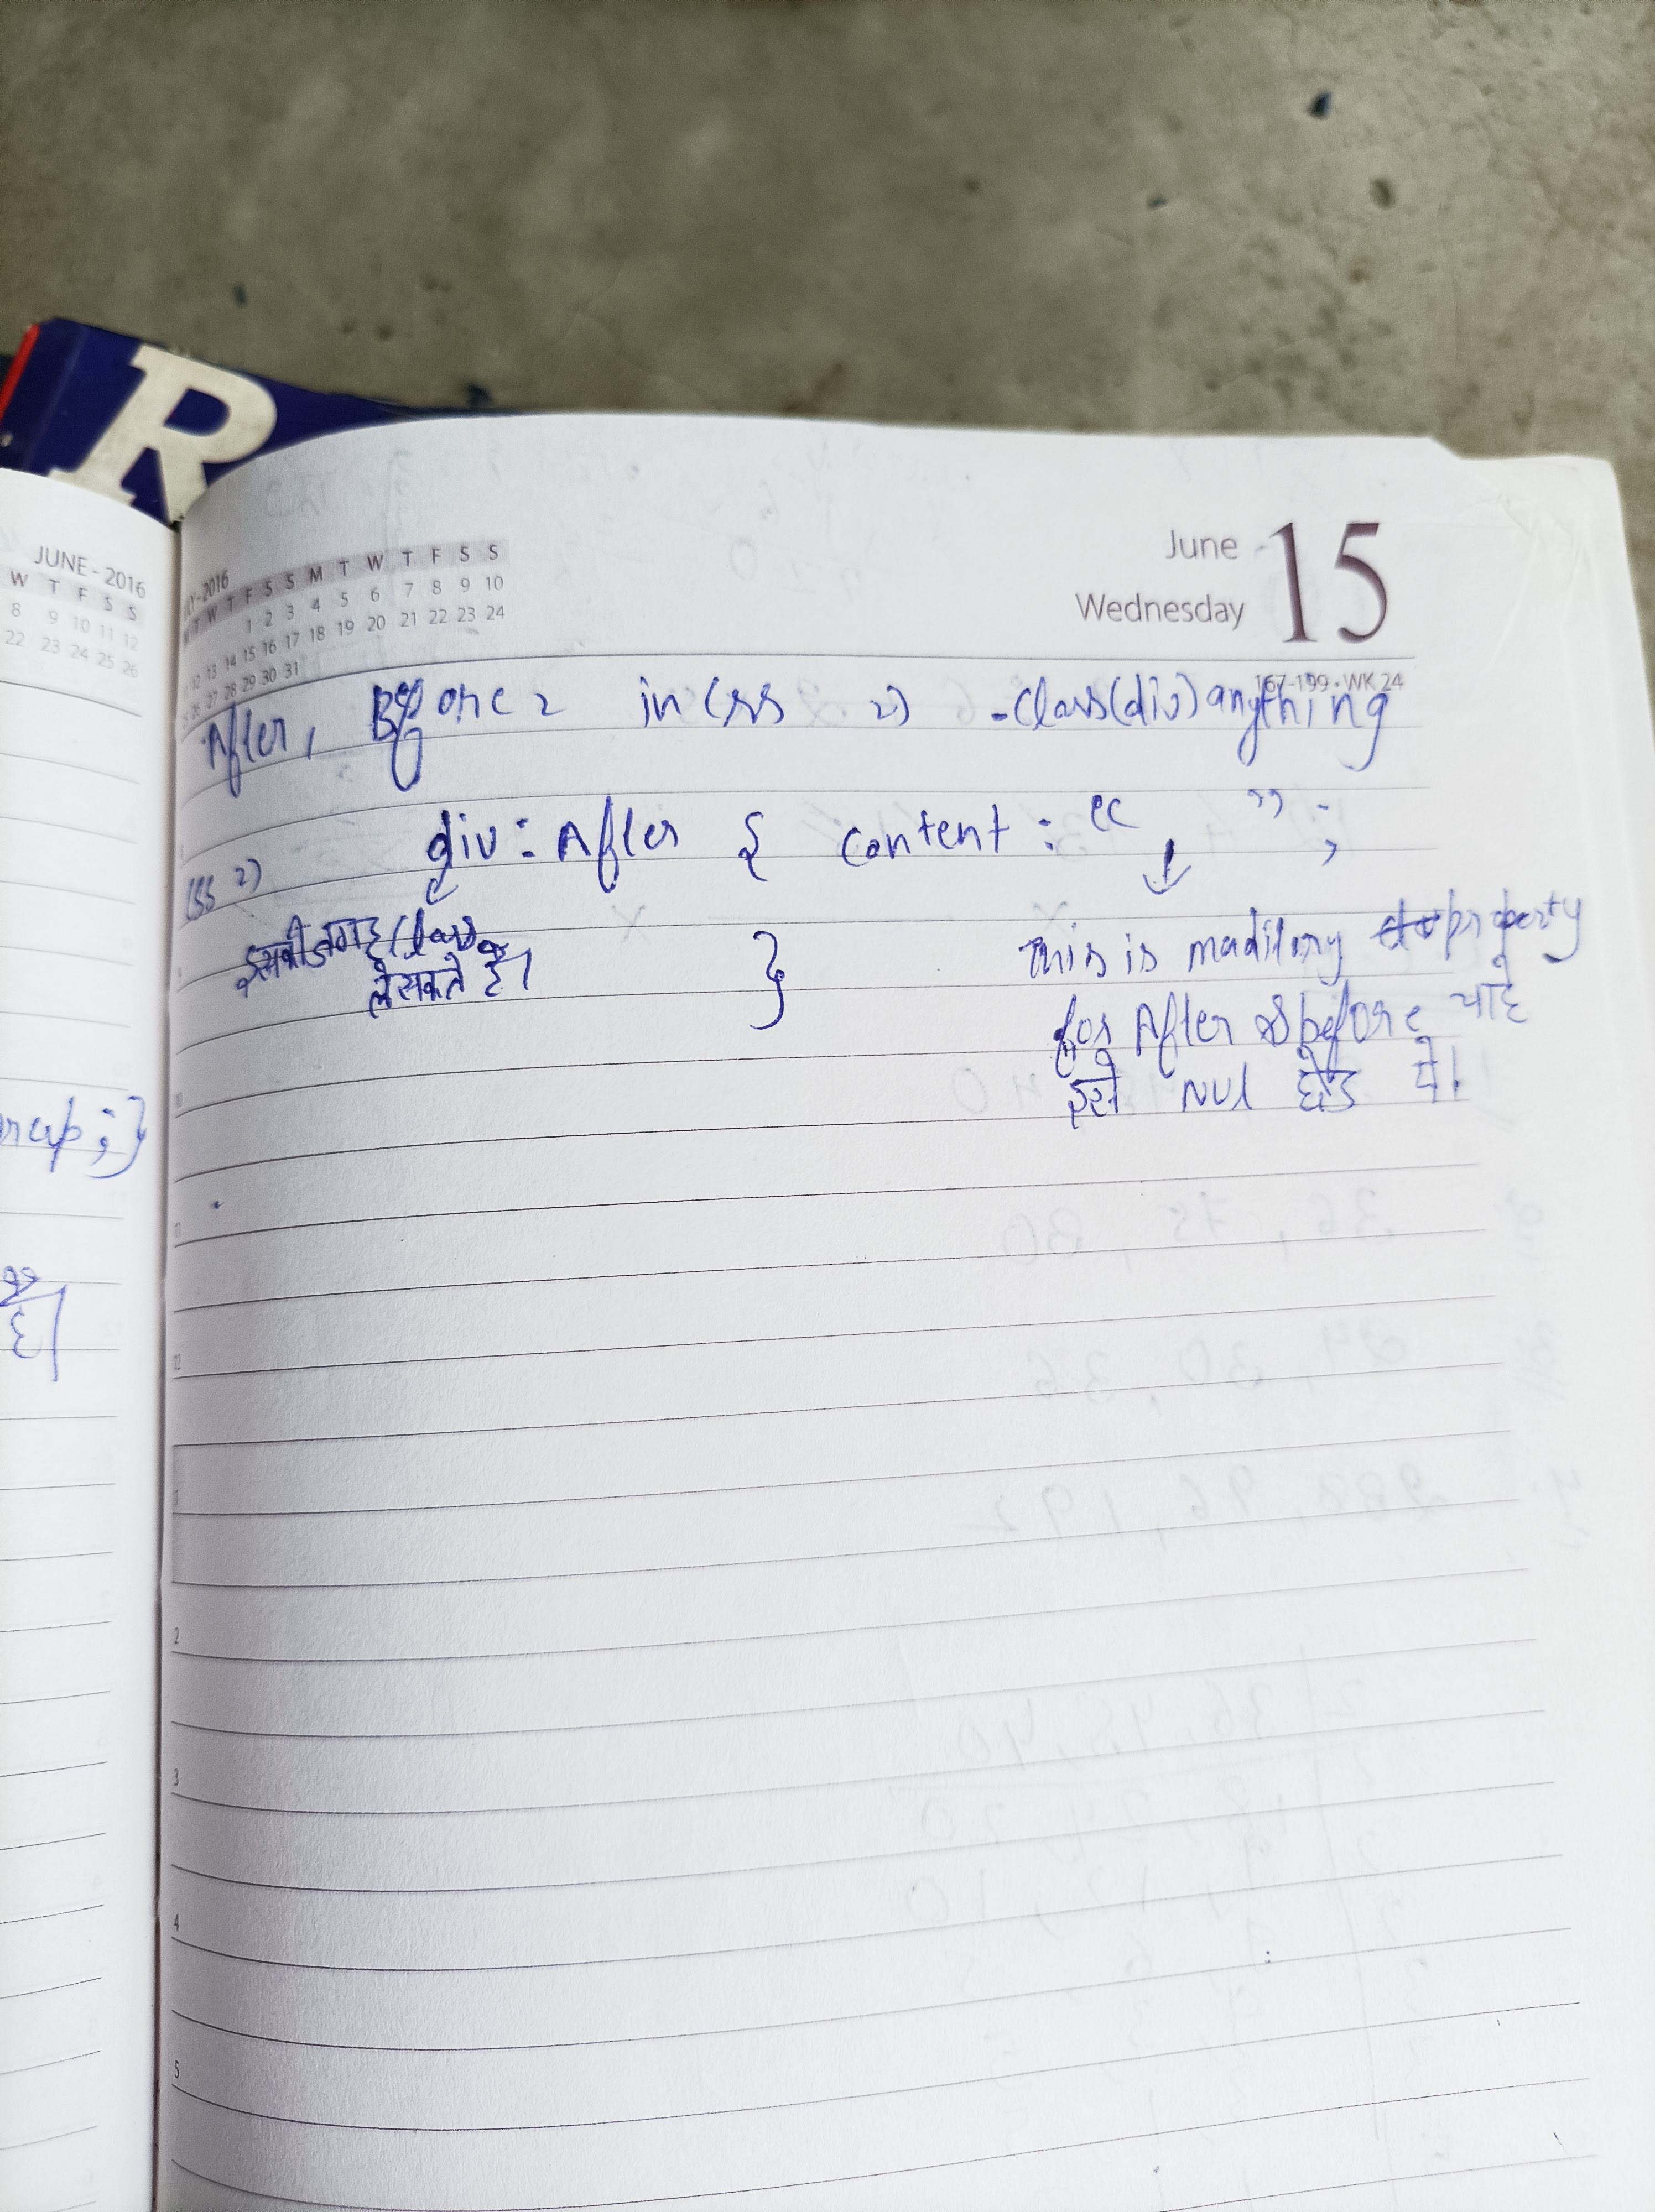 R
JUNE - 2016
W T F S S
8 9 10 11 12
22 23 24 25 26
rap ; }
है।
LY-2016
T W T F S S M T W T F S S M T W T F S S
1 2 3 4 5 6 7 8 9 10
12 13 14 15 16 17 18 19 20 21 22 23 24
26 27 28 29 30 31
June 15
Wednesday
167-199 • WK 24
After, Before in css =) .class(div) anything
css =) div : After { content : " " ;
इसकी जगह class
ले सकते है।
}
This is maditory property
for After & before चाहे
इसे NUl छोड दे।
10
11
12
1
2
3
4
5